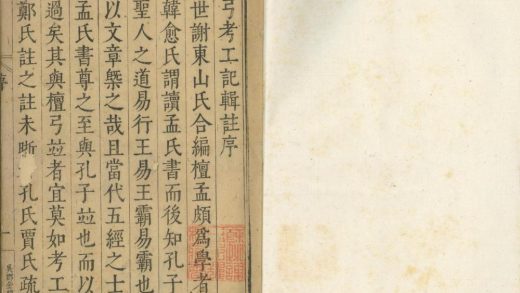 弓考工記輯註序
世謝東山氏合編檀孟頗爲學者
韓愈氏謂讀孟氏書而後知孔子
聖人之道易行王易王霸易霸也
以文章槩之哉且當代五經之士
孟氏書尊之至與孔子竝也而以
過矣其與檀弓竝者宜莫如考工
鄭氏註之註未晰孔氏賈氏疏
序
一